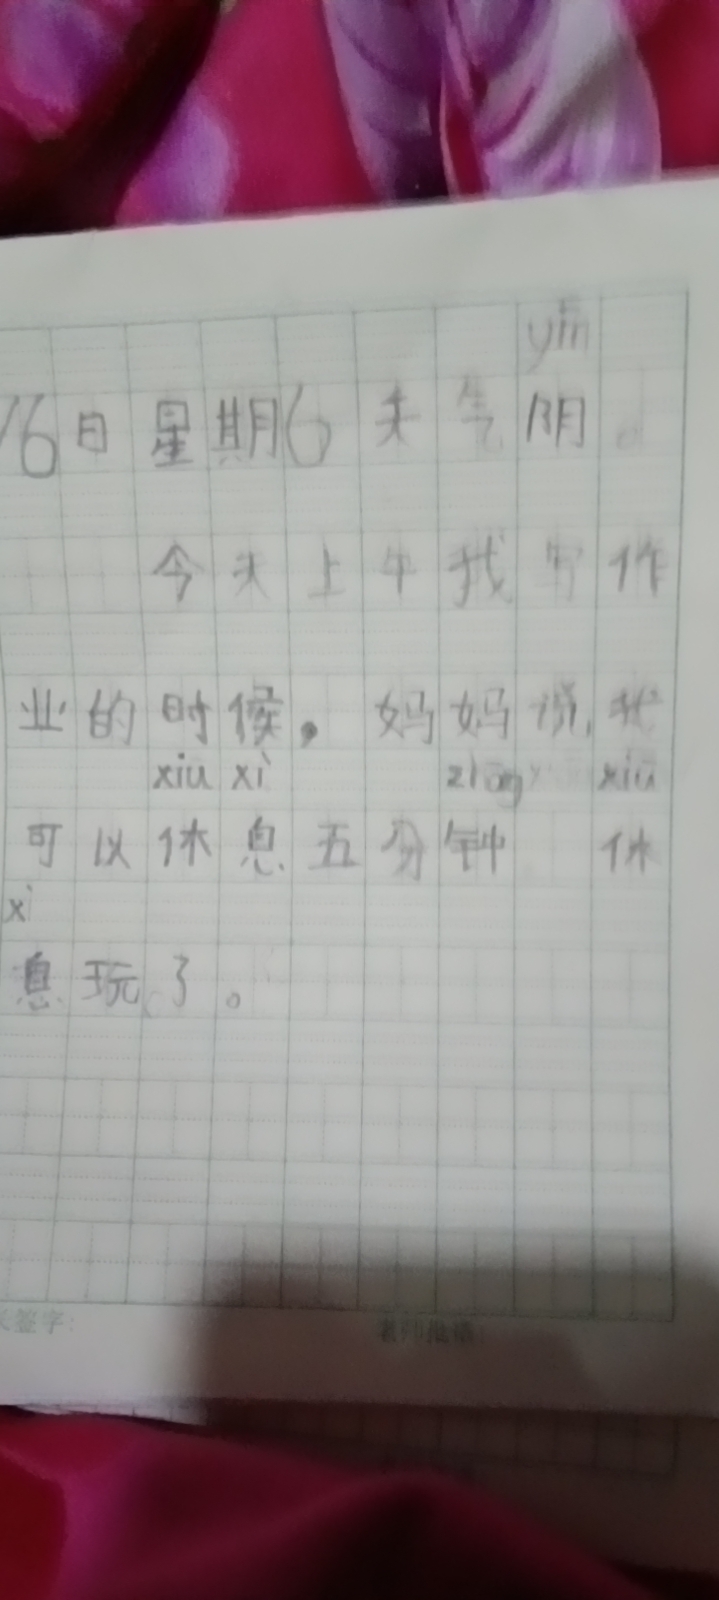 yīn
16日 星期6 天气 阴。
今天上午我写作
业的时候，妈妈说，我
xiū xi zhōng xiū
可以休息五分钟 休
xi
息玩了。
长签字：　老师批语：